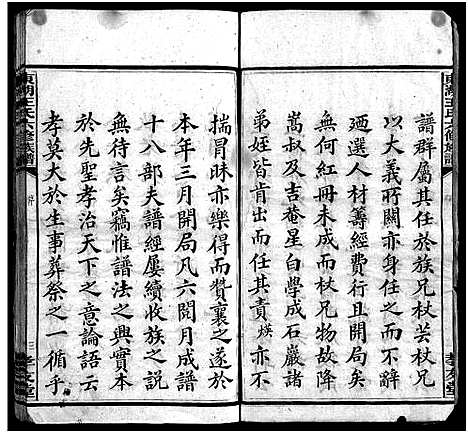 譜群屬其任於族兄杖芸杖兄
以大義所關亦身任之而不辭
廼選人材籌經費行且開局矣
無何紅冊未成而杖兄物故降
嵩叔及吉菴星白學成石巖諸
姪皆肯出而任其責煐亦不
揣冒昧亦樂得而贊襄之遂於
本年三月開局凡六閱月成譜
十八部夫譜經屢續收族之效
無待言矣竊惟譜法之興實本
於先聖孝治天下之意論語云
孝莫大於生事葬祭之一循乎